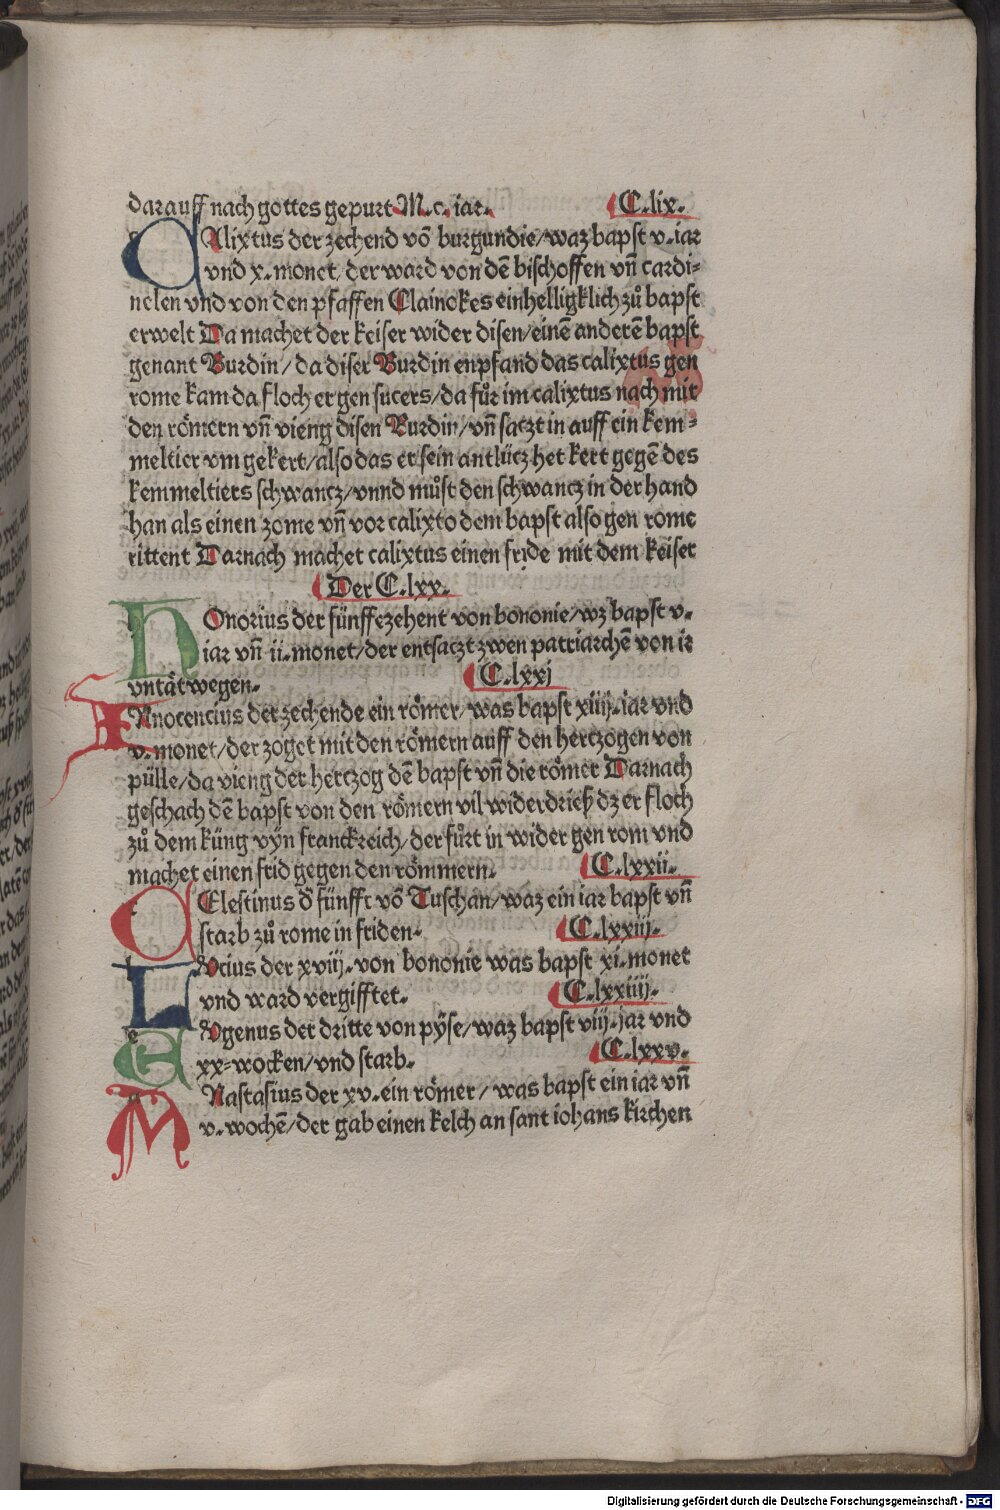 darauff nach gottes gepurt M.c. iar. C.lix.
CAlixtus der zechend võ burgundie/waz bapst v.iar
vnd x.monet, der ward von dē bischoffen vn̄ cardi-
nelen vnd von den pfaffen Clainokes einhelligklich zů bapst
erwelt Da machet der keiser wider disen/einē anderē bapst
genant Burdin/da diser Burdin enpfand das calixtus gen
rome kam da floch er gen sucers/da fůr im calixtus nach mit
den römern vn̄ vieng disen Burdin/vn̄ saczt in auff ein kem-
meltier vm gekert/also das er sein antlücz het kert gegē des
kemmeltiers schwancz/vnnd můst den schwancz in der hand
han als einen zome vn̄ vor calixto dem bapst also gen rome
rittent Darnach machet calixtus einen fride mit dem keiser
Der C.lxx.
HOnorius der fünffczehent von bononie/wz bapst v.
iar vn̄ ii.monet/der entsaczt zwen patriarchē von ir
vntät wegen. C.lxxj
INnocencius der zechende ein römer/was bapst xiiij.iar vnd
v.monet/der zoget mit den römern auff den hertzogen von
pülle/da vieng der hertzog dē bapst vn̄ die römer Darnach
geschach dē bapst von den römern vil widerdrieß dz er floch
zů dem küng vyn franckreich/der fůrt in wider gen rom vnd
machet einen frid gegen den römmern. C.lxxii.
CElestinus d̄ fünfft võ Tuschan/waz ein iar bapst vn̄
starb zů rome in friden. C.lxxiij.
LVcius der xviij.von bononie was bapst xi.monet
vnd ward vergifftet. C.lxxiiij.
EVgenus der dritte von pÿse/waz bapst viij.jar vnd
xx-wocken/vnd starb. C.lxxv.
ANastasius der xv.ein römer/was bapst ein iar vn̄
v.wochē/der gab einen kelch an sant iohans kirchen
Digitalisierung gefördert durch die Deutsche Forschungsgemeinschaft - DFG